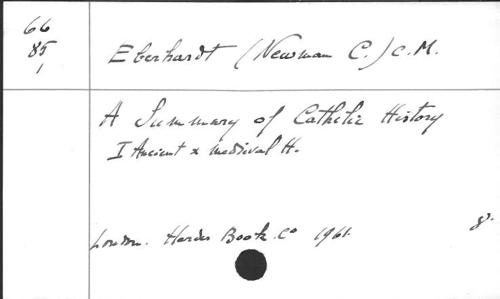 66
85
1
Eberhardt (Newman C.) C. M.
A Summary of Catholic History
I Ancient & Medieval H.
London. Herder Book Co 1961.
8°